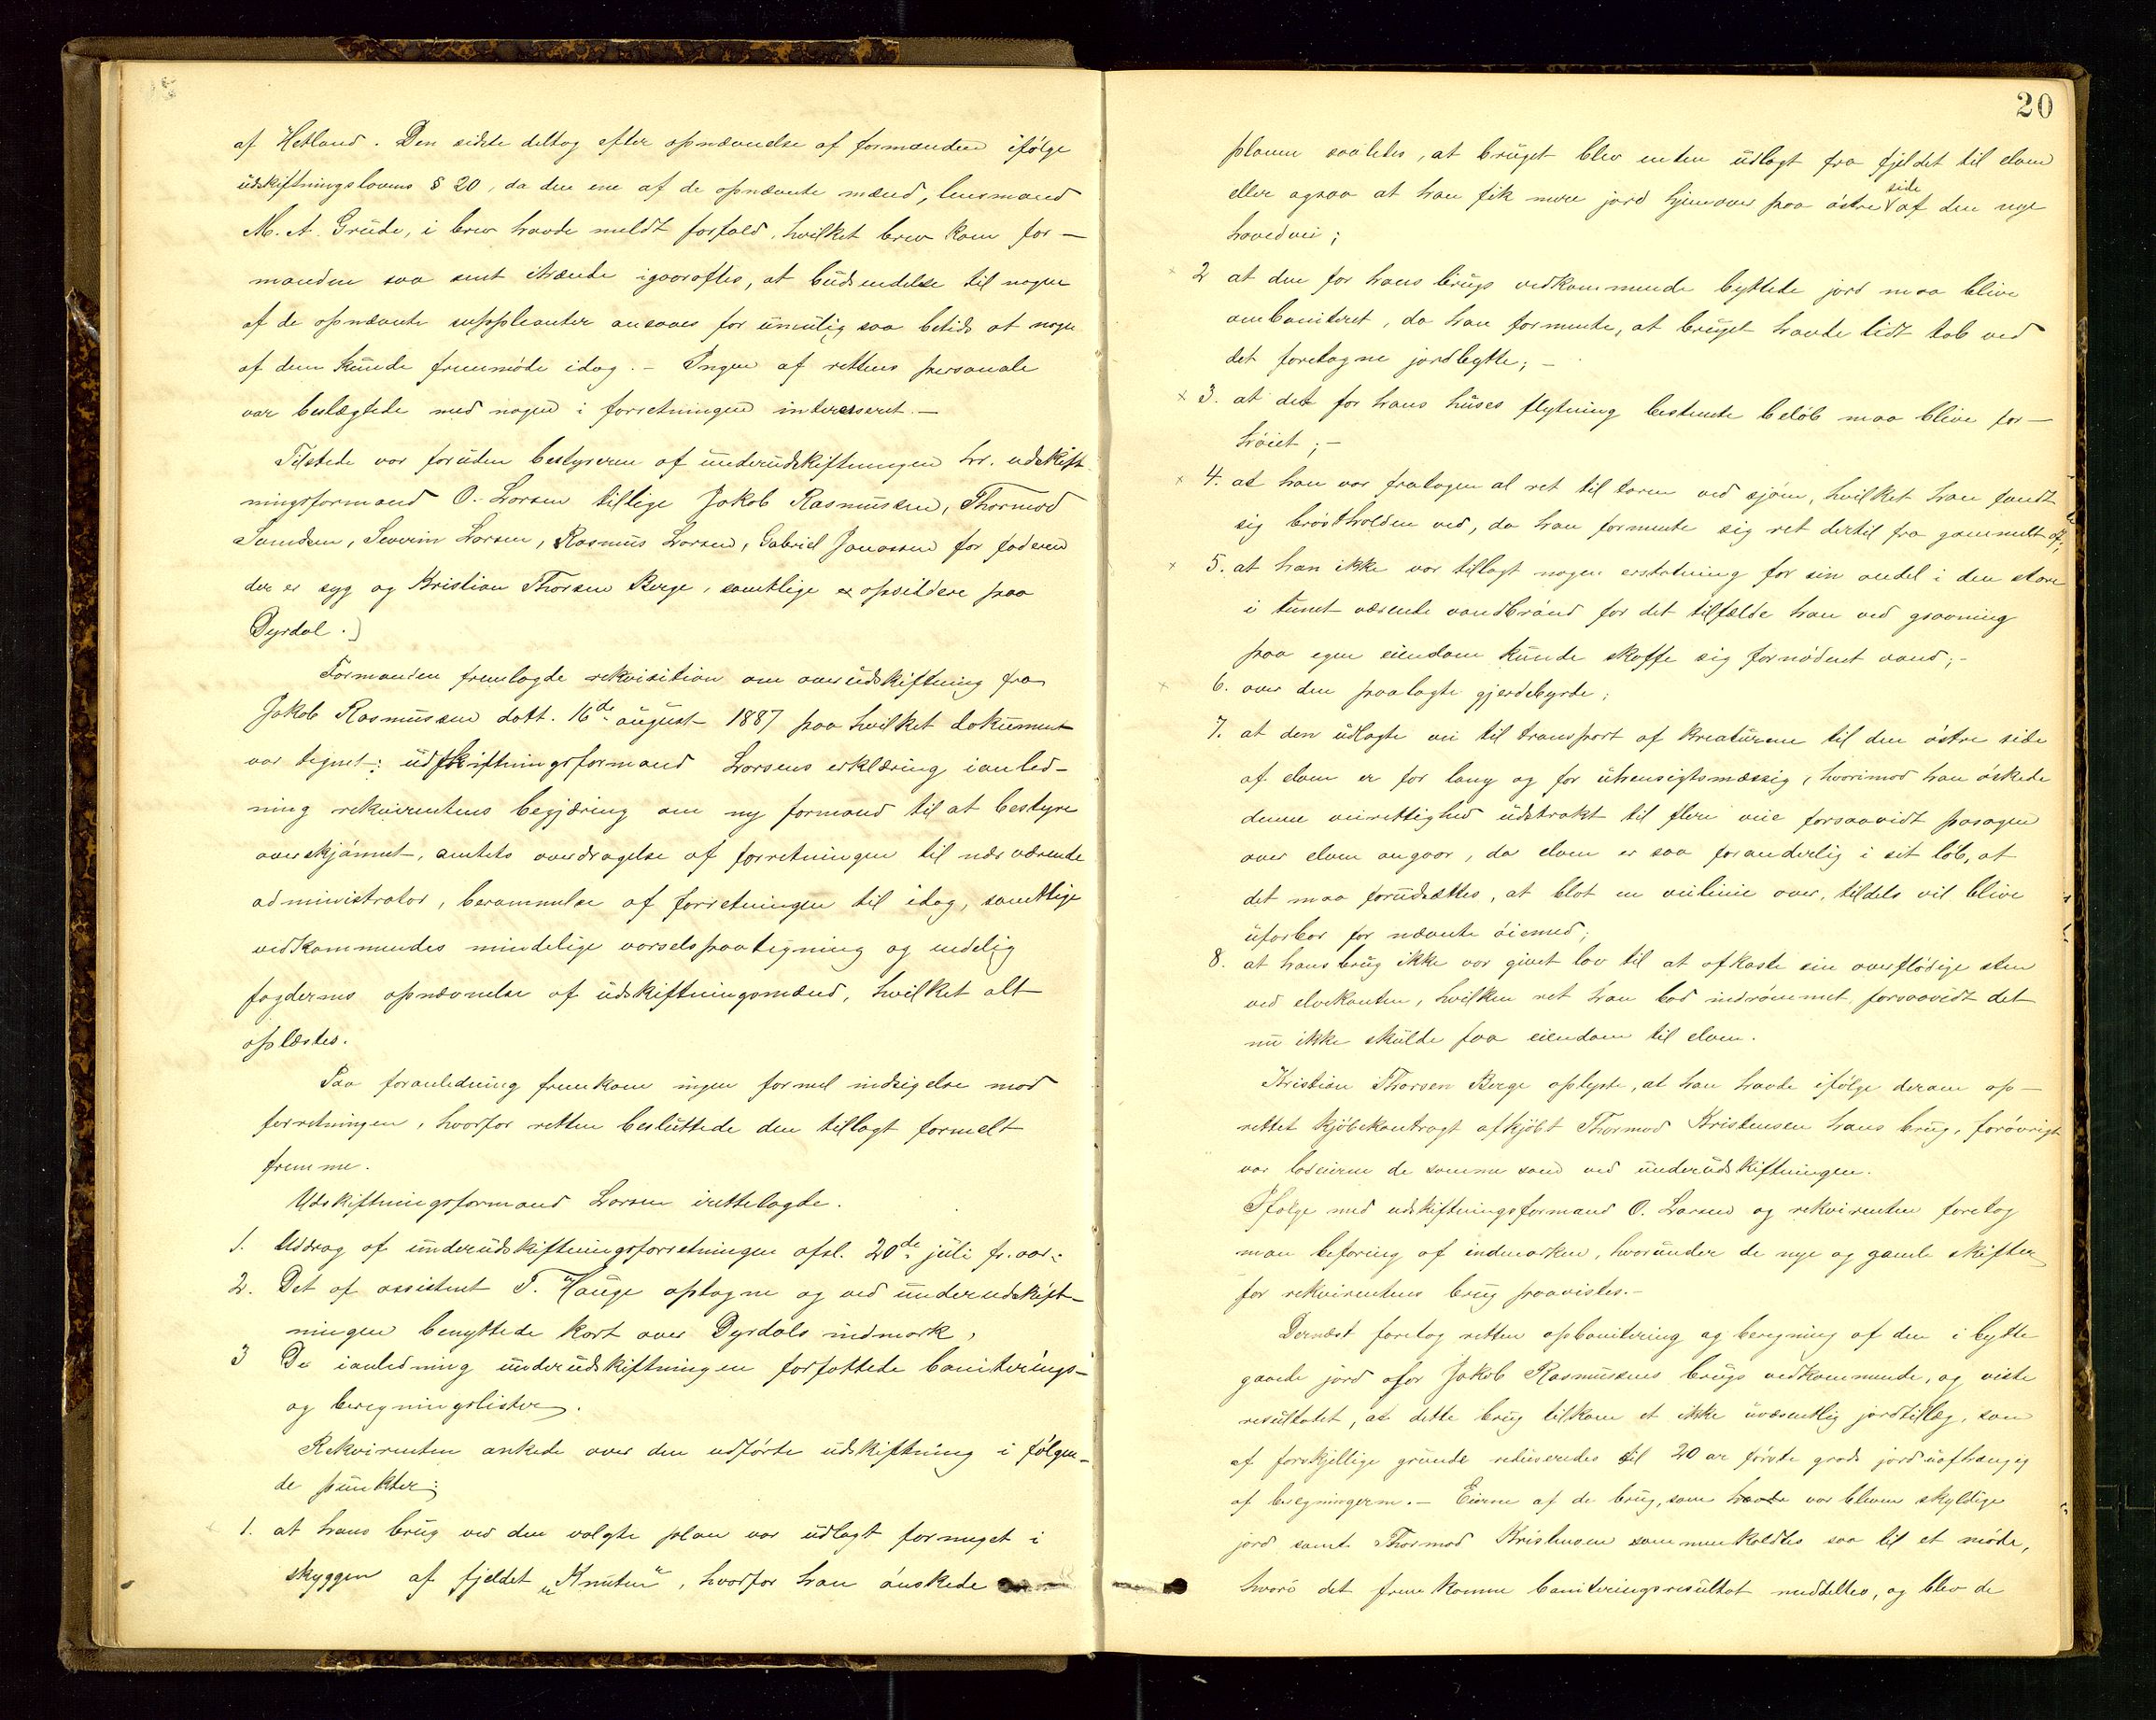 af Hetland. Den sidste deltog efter opnævnelse af formanden ifølge
udskiftningslovens § 20, da den ene af de opnævnte mænd, lensmand
M. A. Grude, i brev havde meldt forfald, hvilket brev kom for-
manden saa sent ihænde igaaraftes, at budsendelse til nogen
af de opnævnte suppleanter ansaaes for umulig saa betids at nogen
af dem kunde fremmøde idag. – Ingen af rettens personale
var beslægtede med nogen i forretningen interesseret. –
Tilstede var foruden bestyreren af underudskiftningen hr. udskift-
ningsformand O. Larsen tillige Jakob Rasmussen, Thormod
Samdsen, Severin Larsen, Rasmus Larsen, Gabriel Jonassen for faderen
der er syg og Kristian Thorsen Berge, samtlige opsiddere paa
Dyrdal.
Formanden fremlagde rekvisition om overudskiftning fra
Jakob Rasmussen datt. 16de august 1887 paa hvilket dokument
var tegnet: udskiftningsformand Larsens erklæring ianled-
ning rekvirentens begjæring om ny formand til at bestyre
overskjønnet, amtets overdragelse af forretningen til nærværende
administrator, berammelse af forretningen til idag, samtlige
vedkommendes mindelige varselspaategning og endelig
fogdernes opnævnelse af udskiftningsmænd, hvilket alt
oplæstes.
Paa foranledning fremkom ingen formel indsigelse mod
forretningen, hvorfor retten besluttede den tillagt formelt
fremme.
Udskiftningsformand Larsen irettelagde.
1. Uddrag af underudskiftningsforretningen afsl. 20de juli f. aar.
2. Det af assistent T. Hauge optagne og ved underudskift-
ningen benyttede kort over Dyrdals indmark,
3 De ianledning underudskiftningen forfattede boniterings-
og beregningslister.
Rekvirenten ankede over den udførte udskiftning i følgen-
de punkter:
1. at hans brug ved den valgte plan var udlagt formeget i
skyggen af fjeldet „Knuten“, hvorfor han ønskede
20
planen saaledes, at bruget blev enten udlagt fra fjeldet til elven
eller ogsaa at han fik mere jord hjemover paa østre side af den nye
hovedvei;
2 at den for hans brugs vedkommende byttede jord maa blive
omboniteret, da han formente, at bruget havde lidt tab ved
det foretagne jordbytte; –
3. at det for hans huses flytning bestemte beløb maa blive for-
høiet; –
4. at han var fratagen al ret til taren ved sjøen, hvilket han fandt
sig brøstholden ved, da han formente sig ret dertil fra gammelt af;
5. at han ikke var tillagt nogen erstatning for sin andel i den store
i tunet værende vandbrønd for det tilfælde han ved gravning
paa egen eiendom kunde skaffe sig fornødent vand; –
6. over den paalagte gjerdebyrde;
7. at den udlagte vei til transport af kreaturene til den østre side
af elven er for lang og for uhensigtsmæssig, hvorimod han øskede
denne veirettighed udstrakt til flere veie forsaavidt pasagen
over elven angaar, da elven er saa foranderlig i sit løb, at
det maa forudsættes, at blot en veilinie over, tildels vil blive
ufarbar for nævnte øiemed;
8. at hans brug ikke var givet lov til at afkaste sin overflødige sten
ved elvekanten, hvilken ret han bad indrømmet, forsaavidt det
nu ikke skulde faa eiendom til elven.
Kristian Thorsen Berge oplyste, at han havde ifølge derom op-
rettet kjøbekontragt afkjøbt Thormod Kristensen hans brug, forøvrigt
var lodeierne de samme som ved underudskiftningen.
Ifølge med udskiftningsformand O. Larsen og rekvirenten foretog
man befaring af indmarken, hvorunder de nye og gamle skifter
for rekvirentens brug paavistes. –
Dernæst foretog retten opbonitering og beregning af den i bytte
gaaede jord for Jakob Rasmussens brugs vedkommende, og viste
resultatet, at dette brug tilkom et ikke uvæsentlig jordtillæg, som
af forskjellige grunde reduseredes til 20 ar første grads jord uafhængig
af beregningerne. – Eierne af de brug, som var bleven skyldige
jord samt Thormod Kristensen sammenkaldtes saa til et møde,
hvori det fremkomne boniteringsresultat meddeltes, og blev de